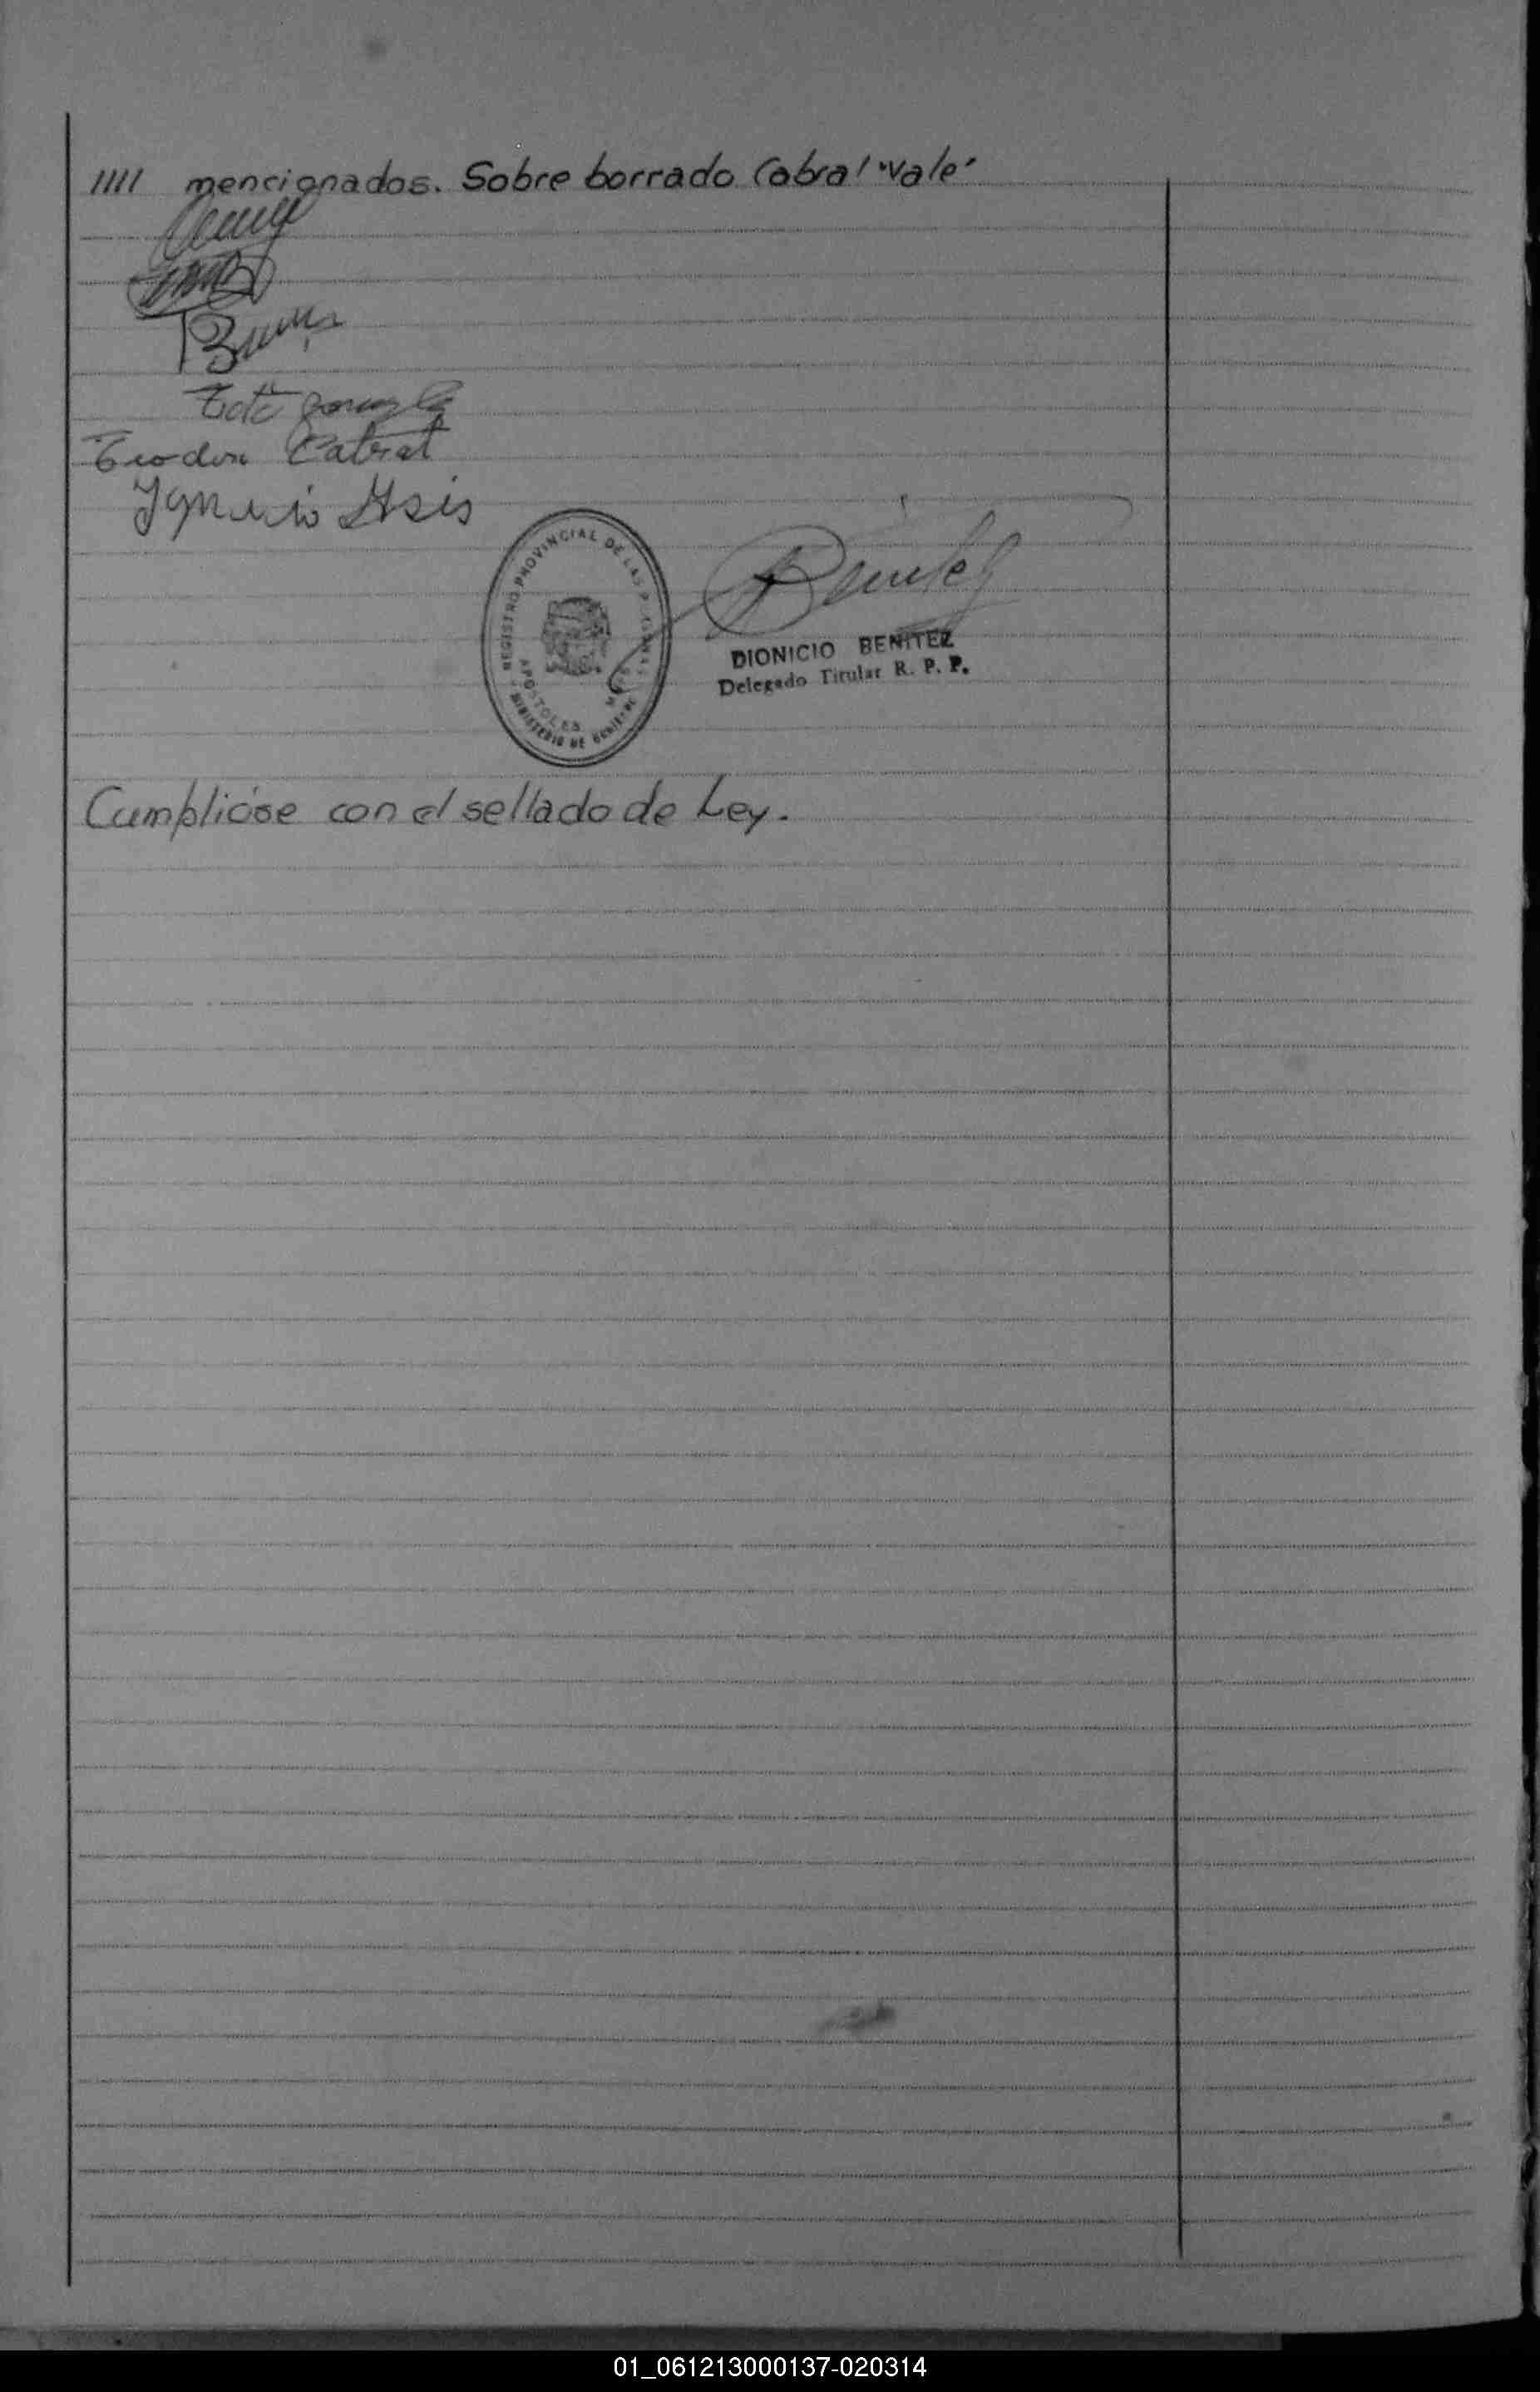 //// mencionados. Sobre borrado Cabral "vale"
Cabral
Ignacio Asis
REGISTRO PROVINCIAL DE LAS PERSONAS
APOSTOLES
MINISTERIO DE GOBIERNO
Benitez
DIONICIO BENITEZ
Delegado Titular R. P. P.
Cumplióse con el sellado de Ley.
01_061213000137-020314